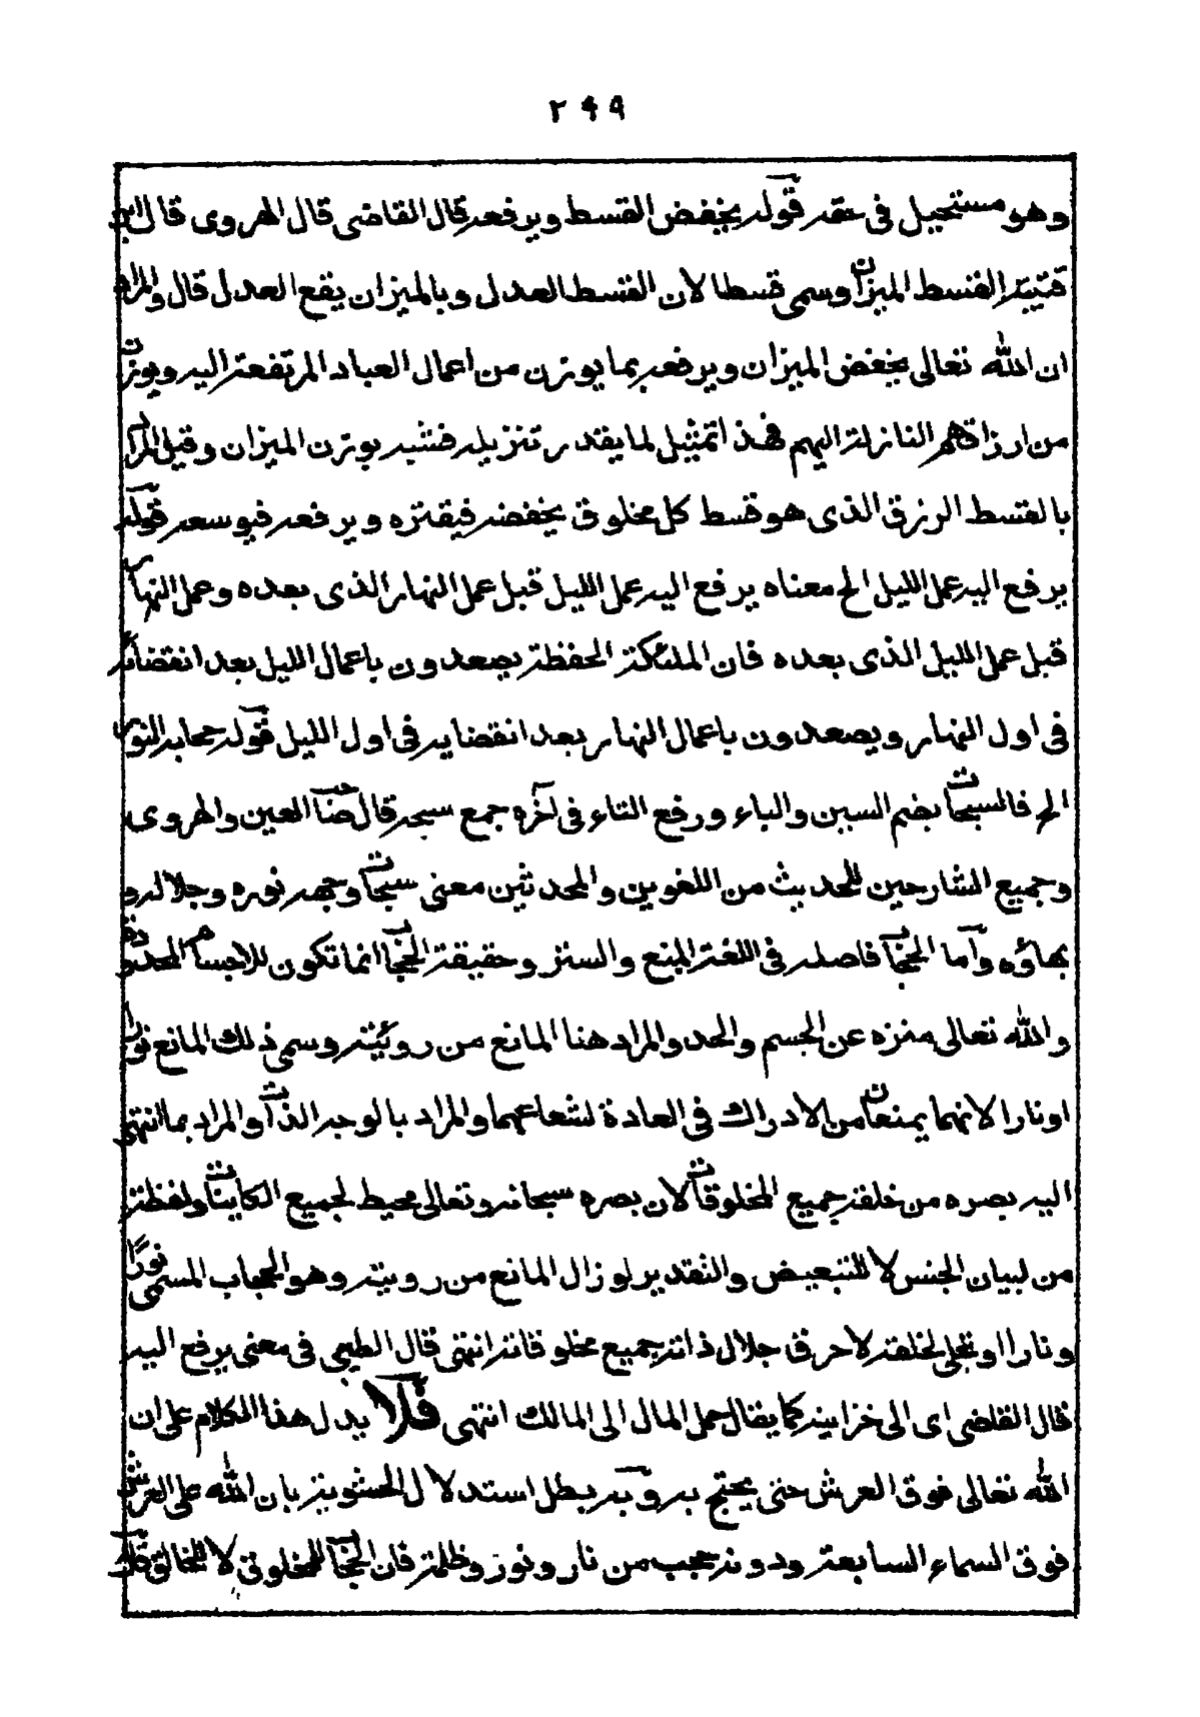 ٢٩٩
وهو مستحيل في حقه قوله يخفض القسط ويرفعه قال القاضي قال الهروى قال ابن
قتيبة القسط الميزان وسمى قسطا لان القسط العدل وبالميزان يقع العدل قال والمراد
ان الله تعالى يخفض الميزان ويرفعه بما يوزن من اعمال العباد المرتفعة اليه ويوزن
من ارزاقهم النازلة اليهم فهذا تمثيل لما يقدر تنزيله فشبه بوزن الميزان وقيل المراد
بالقسط الرزق الذى هو قسط كل مخلوق يخفضه فيقتره ويرفعه فيوسعه قوله
يرفع اليه عمل الليل الخ معناه يرفع اليه عمل الليل قبل عمل النهار الذى بعده وعمل النهار
قبل عمل الليل الذى بعده فان الملئكة الحفظة يصعدون باعمال الليل بعد انقضائه
في اول النهار ويصعدون باعمال النهار بعد انقضايه في اول الليل قوله حجابه النور
الخ فالسبحات بضم السين والباء ورفع التاء في آخره جمع سبحه قال صاحب العين والهروى
وجميع الشارحين للحديث من اللغوين والمحدثين معنى سبحات وجهه نوره وجلاله و
بهاؤه وآما الحجاب فاصله في اللغة المنع والستر وحقيقة الحجاب انما تكون للاجسام المحدودة
والله تعالى منزه عن الجسم والحد والمراد هنا المانع من روئيته وسمى ذلك المانع نورا
اونارا لانهما يمنعان من الادراك في العادة لشعاعهما والمراد بالوجه الذات والمراد بما انتهى
اليه بصره من خلقه جميع المخلوقات لان بصره سبحانه وتعالى محيط لجميع الكاينات ولفظة
من لبيان الجنس لا للتبعيض والتقدير لو زال المانع من رويته وهو الحجاب المسمى نورًا
ونارا او تجلى لخلقه لاحرق جلال ذاته جميع مخلوقاته انتهى قال الطيبى في معنى يرفع اليه
قال القاضى اى الى خزاينه كما يقال حمل المال الى المالك انتهى فلا يدل هذا الكلام على ان
الله تعالى فوق العرش حتى يحتج به وبه يبطل استدلال الحشوية بان الله على العرش
فوق السماء السابعة ودونه حجب من نار ونور وظلمة فان الحجاب للمخلوق لا للخالق